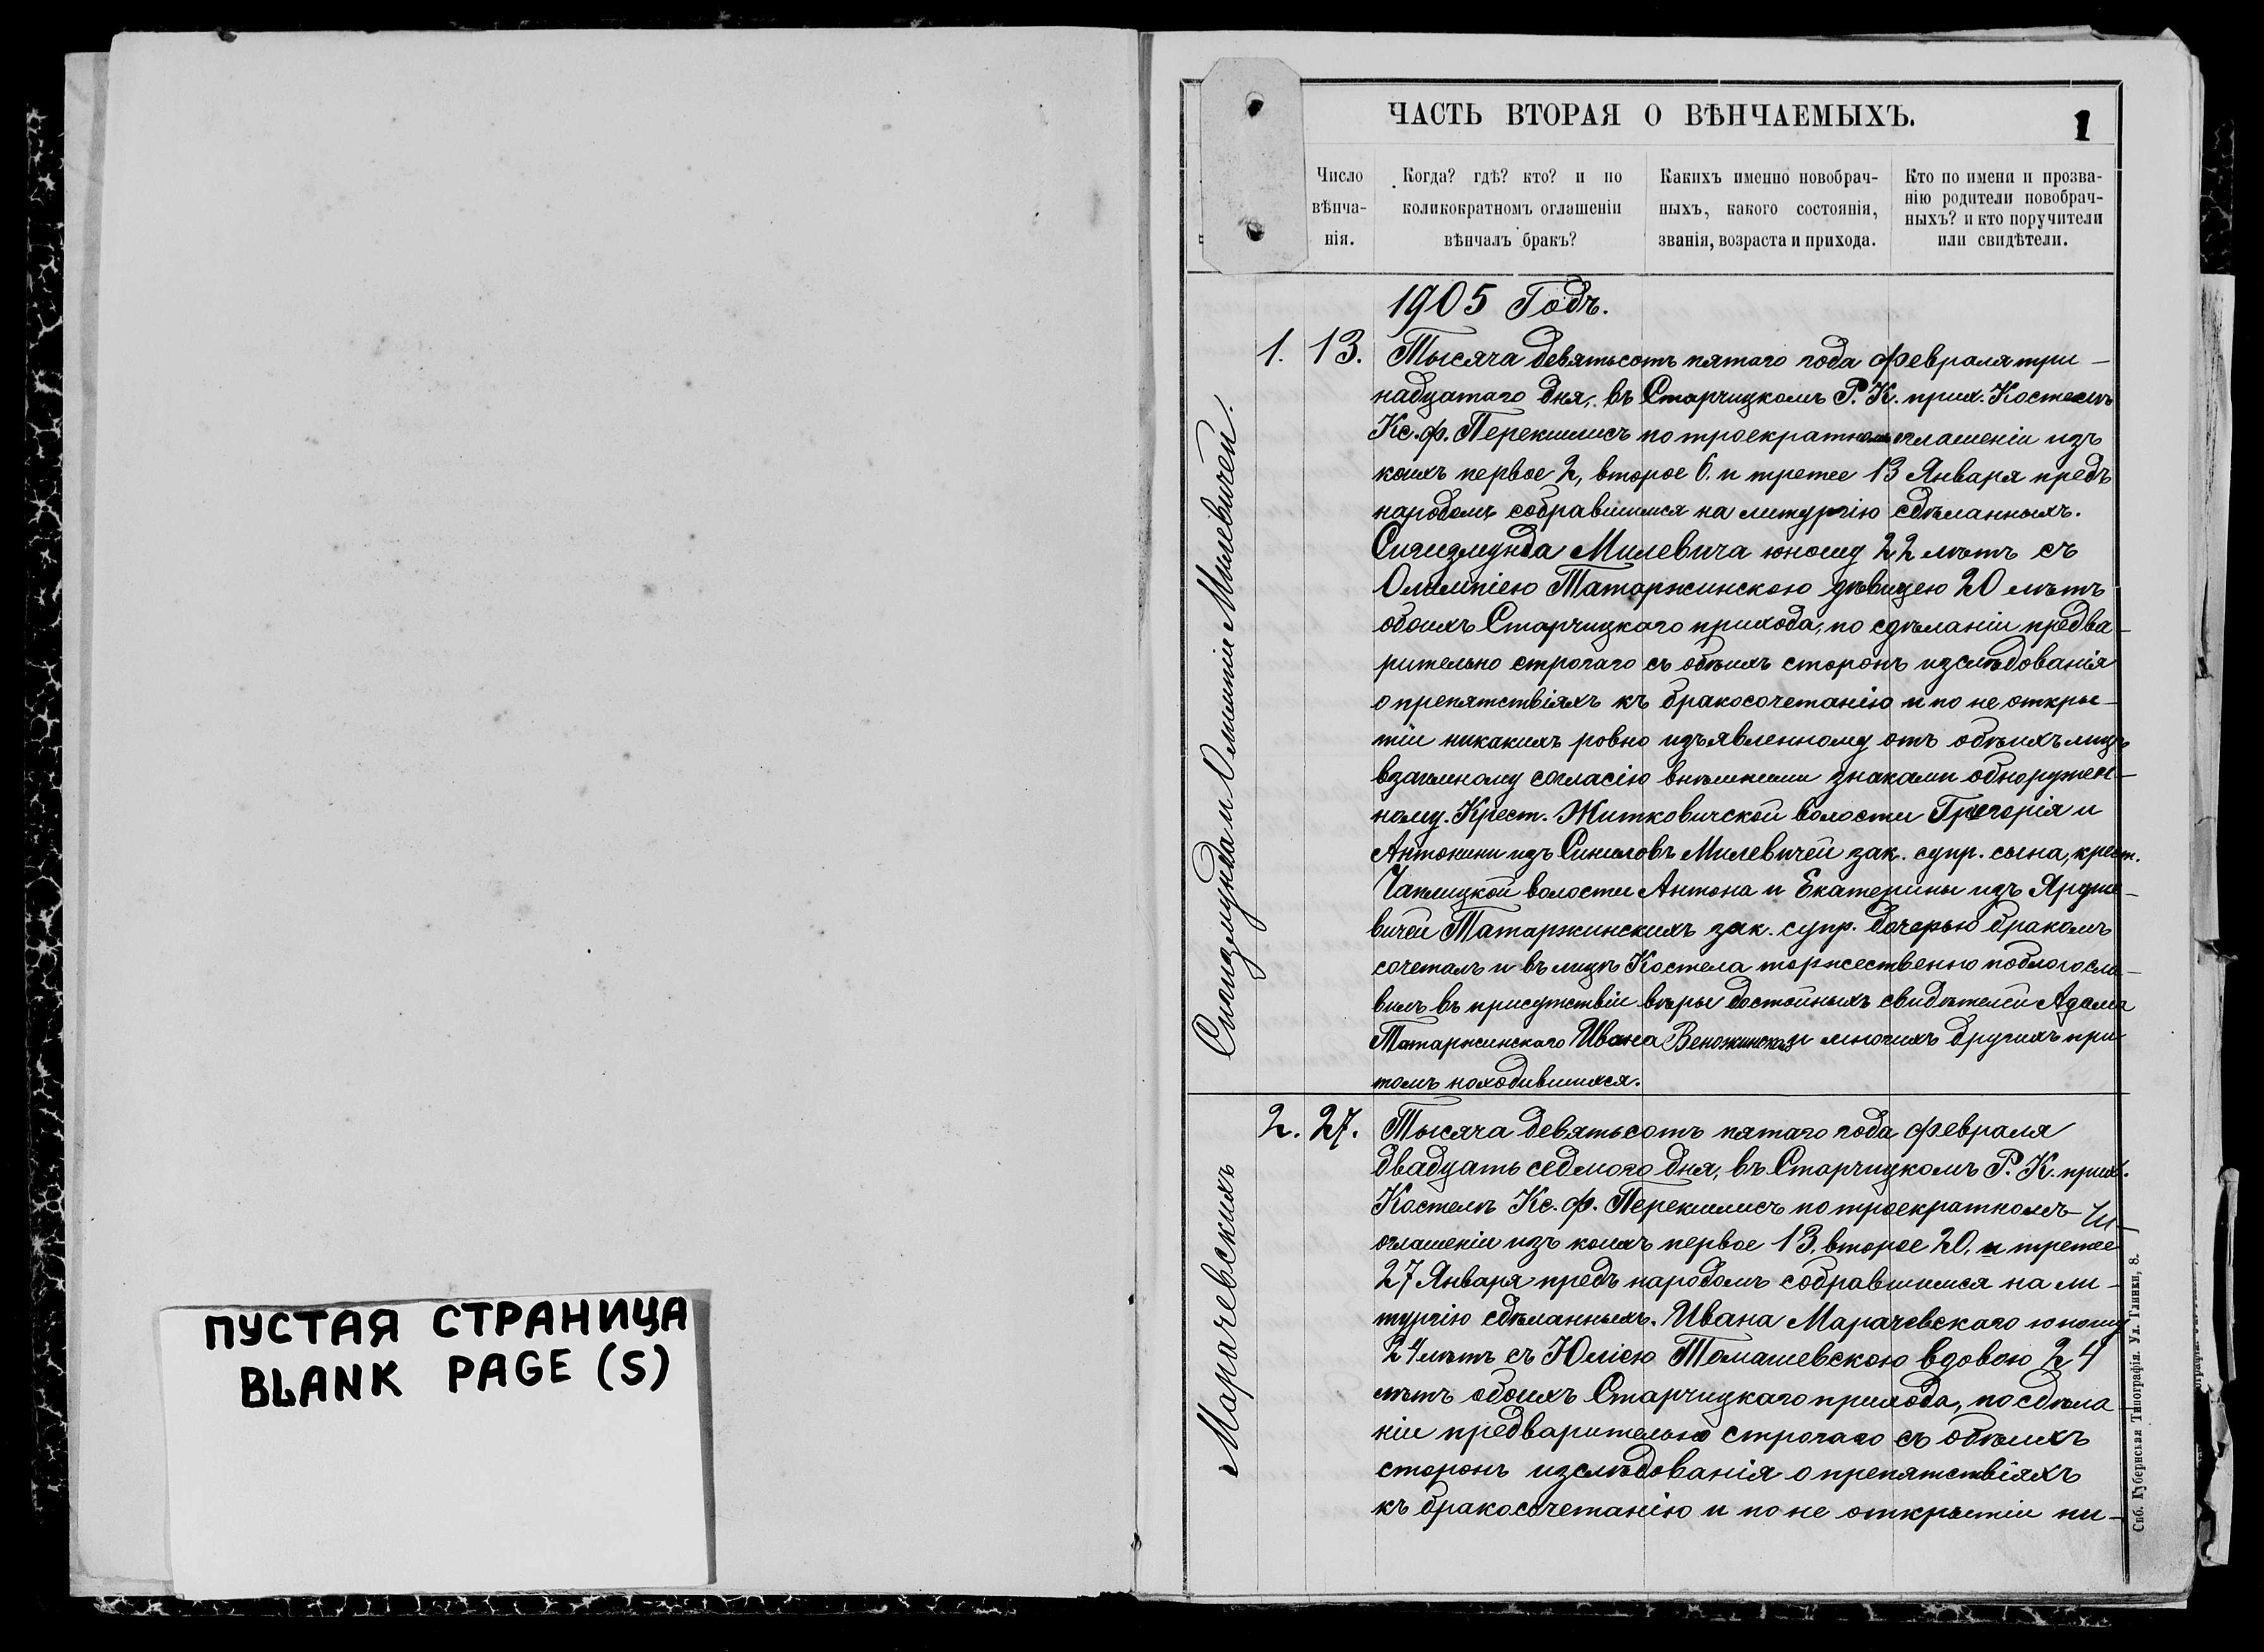 ПУСТАЯ СТРАНИЦА
BLANK PAGE (S)
ЧАСТЬ ВТОРАЯ О ВѢНЧАЕМЫХЪ.
1
Число вѣнча-нія.
Когда? гдѣ? кто? и по коликократномъ оглашеніи вѣнчалъ бракъ?
Какихъ именно новобрач-ныхъ, какого состоянія, званія, возраста и прихода.
Кто по имени и прозва-нію родители новобрач-ныхъ? и кто поручители или свидѣтели.
1905 Годъ.
Сигизмунда и Олимпіи Милевичей.
1. 13. Тысяча девятьсотъ пятаго года февраля три-
надцатаго дня, въ Старчицкомъ Р. К. прих. Костелѣ
Кс. Ф. Перекшлисъ по троекратномъ оглашеніи изъ
коихъ первое 2, второе 6. и третее 13 Января предъ
народомъ собравшимся на литургію сдѣланныхъ.
Сигизмунда Милевича юношу 22 лѣтъ съ
Олимпіею Татаржинскою дѣвицею 20 лѣтъ
обоихъ Старчицкаго прихода, по сдѣланіи предва-
рительно строгаго съ обѣихъ сторонъ изслѣдованія
о препятствіяхъ къ бракосочетанію и по не откры-
тіи никакихъ ровно изъявленному отъ обѣихъ лицъ
взаимному согласію внѣшними знаками обнаружен-
ному. Крест. Житковичской волости Григорія и
Антонини изъ Милевичей зак. супр. сына, крест.
Чаплицкой волости Антона и Екатерины изъ Яруше-
вичей Татаржинскихъ зак. супр. дочерью бракомъ
сочеталъ и въ лицѣ Костела торжественно поблагосла-
вилъ въ присутствіи вѣры достойныхъ свидѣтелей Адама
Татаржинскаго Ивана и многихъ другихъ при
томъ находившихся.
Марачевскихъ
2. 27. Тысяча девятьсотъ пятаго года февраля
двадцать седмого дня, въ Старчицкомъ Р. К. прих.
Костелѣ Кс. Ф. Перекшлисъ по троекратномъ
оглашеніи изъ коихъ первое 13, второе 20, и третее
27 Января предъ народомъ собравшимся на ли-
тургію сдѣланныхъ. Ивана Марачевскаго юношу
24 лѣтъ съ Юліею Томашевскою вдовою 24
лѣтъ обоихъ Старчицкаго прихода, по сдѣла
ніи предварительно строгаго съ обѣихъ
сторонъ изслѣдованія о препятствіяхъ
къ бракосочетанію и по не открытіи ни-
Спб. Губернская Типографія. Ул. Глинки, 8.